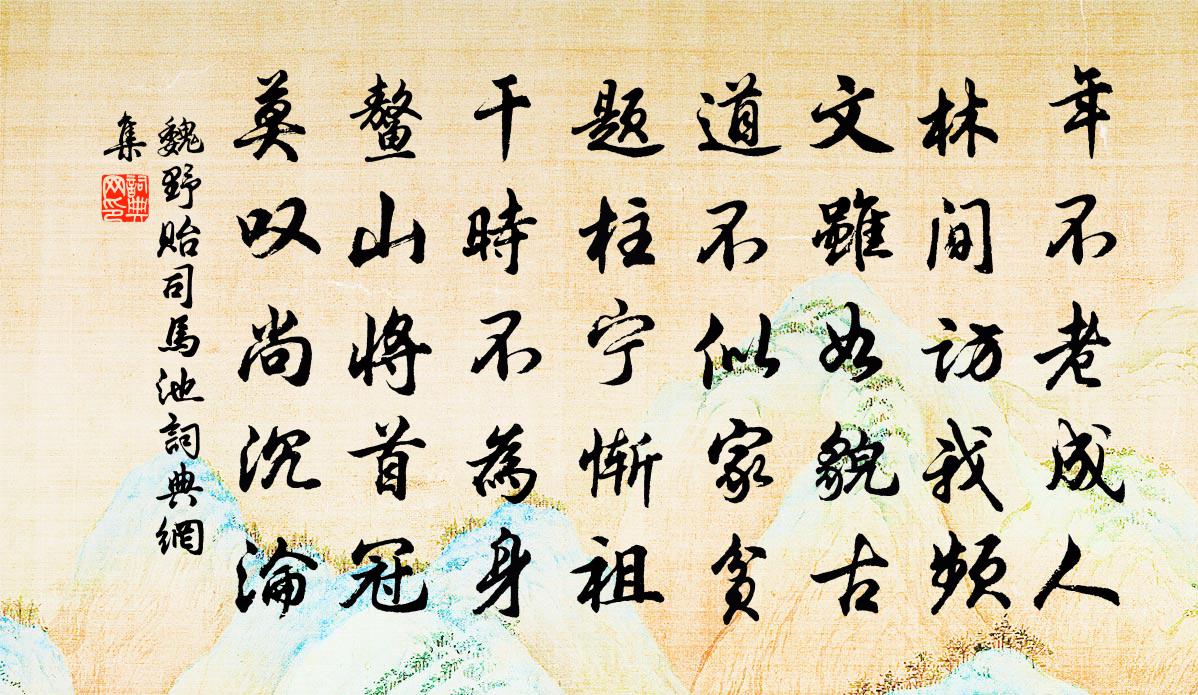 年不老成人
林间访我频
文雖如貌古
道不似家贫
题柱宁惭祖
干時不為身
鳌山将首冠
莫叹尚沉淪
魏野貽司馬池詞典網
集
詞典
网印